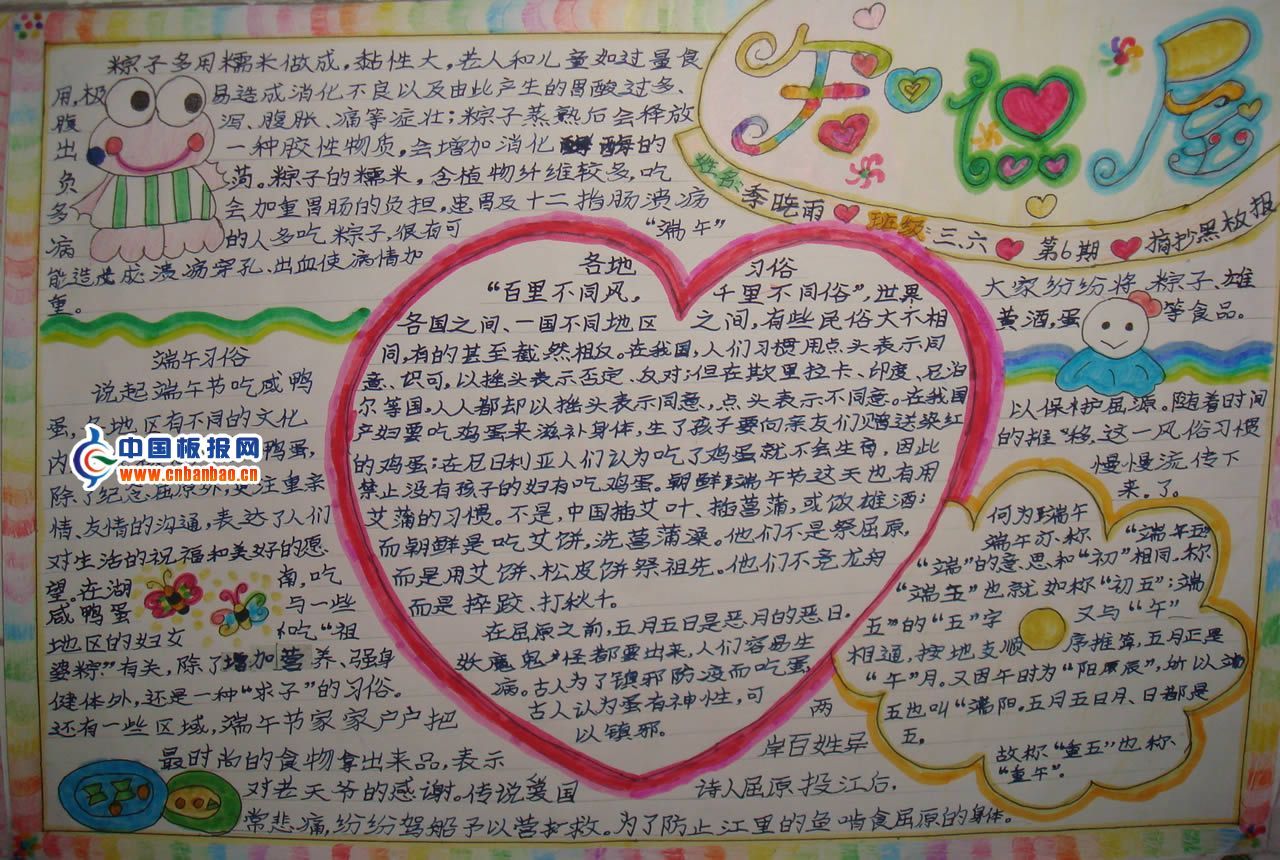 知识屋
姓名:李晓雨 班级:三、六 第6期 摘抄黑板报
粽子多用糯米做成,黏性大,老人和儿童如过量食
用,极易造成消化不良以及由此产生的胃酸过多、
腹泻、腹胀、痛等症壮;粽子蒸熟后会释放
出一种胶性物质,会增加消化酶的
负荷。粽子的糯米,含植物纤维较多,吃
多会加重胃肠的负担,患胃及十二指肠溃疡
病的人多吃粽子,很有可
能造成溃疡穿孔、出血使病情加
重。
端午习俗
说起端午节吃咸鸭
蛋,各地区有不同的文化
内 鸭蛋,
除了纪念屈原外,更注重亲
情、友情的沟通,表达了人们
对生活的祝福和美好的愿
望。在湖南,吃
咸鸭蛋与一些
地区的妇女吃“祖
婆粽”有关,除了增加营养、强身
健体外,还是一种“求子”的习俗。
还有一些区域,端午节家家户户把
最时尚的食物拿出来品,表示
对老天爷的感谢。传说爱国
诗人屈原投江后,
两岸百姓异
常悲痛,纷纷驾船予以营救。为了防止江里的鱼啃食屈原的身体。
大家纷纷将粽子、雄
黄酒,蛋等食品。
以保护屈原。随着时间
的推移,这一风俗习惯
慢慢流传下
来。了。
“端午”
各地习俗
“百里不同风,千里不同俗”,世界
各国之间、一国不同地区之间,有些民俗大不相
同,有的甚至截然相反。在我国,人们习惯用点头表示同
意、识可。以摇头表示否定、反对;但在斯里拉卡、印度、尼泊
尔等国,人人都却以摇头表示同意,点头表示不同意。在我国
产妇要吃鸡蛋来滋补身体,生了孩子要向亲友们赠送染红
的鸡蛋;在尼日利亚人们认为吃了鸡蛋就不会生育,因此
禁止没有孩子的妇有吃鸡蛋。朝鲜端午节这天也有用
艾蒲的习惯。不是,中国插艾叶、插菖蒲,或饮雄酒;
而朝鲜是吃艾饼,洗菖蒲澡。他们不是祭屈原,
而是用艾饼、松皮饼祭祖先。他们不竞龙舟
而是摔跤、打秋千。
在屈原之前,五月五日是恶月的恶日。
妖魔鬼怪都要出来,人们容易生
病。古人为了镇邪防疫而吃蛋,
古人认为蛋有神性,可
以镇邪。
何为端午
端午亦称“端午五”
“端”的意思和“初”相同,称
“端五”也就如称“初五”;端
五”的“五”字又与“午”
相通,按地支顺序推算,五月正是
“午”月。又因午时为“阳辰”,所以端
五也叫“端阳。五月五日月、日都是
五。
故称“重五”也称、
“重午”。
中国板报网
www.cnbanbao.cn